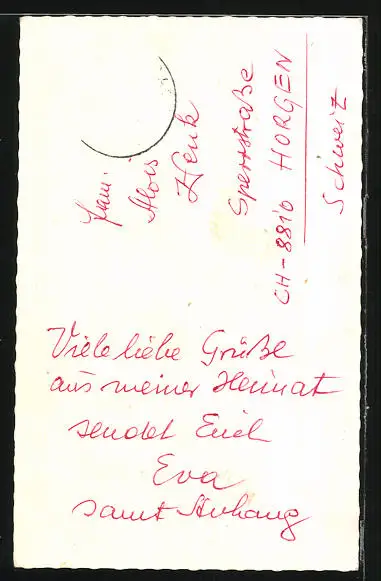 Fam.
Alois
Henk
Sperrstraße
CH-8810 HORGEN
Schweiz
Viele liebe Grüße
aus meiner Heimat
sendet Euch
Eva
samt Anhang